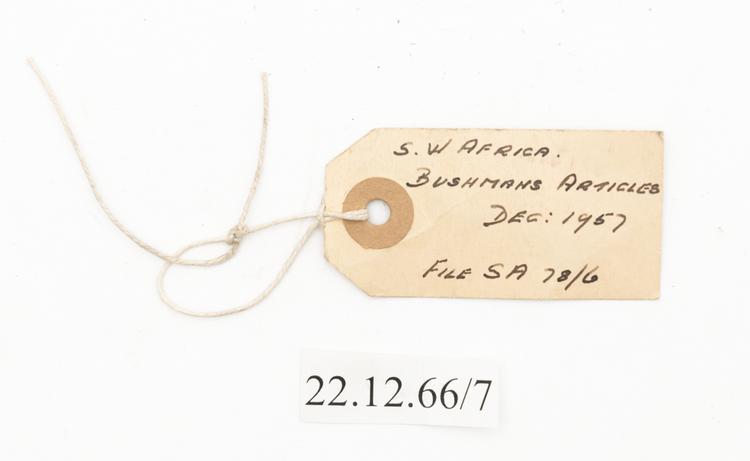 S. W AFRICA.
BUSHMANS ARTICLES
DEC: 1957
FILE SA 78/6
22.12.66/7